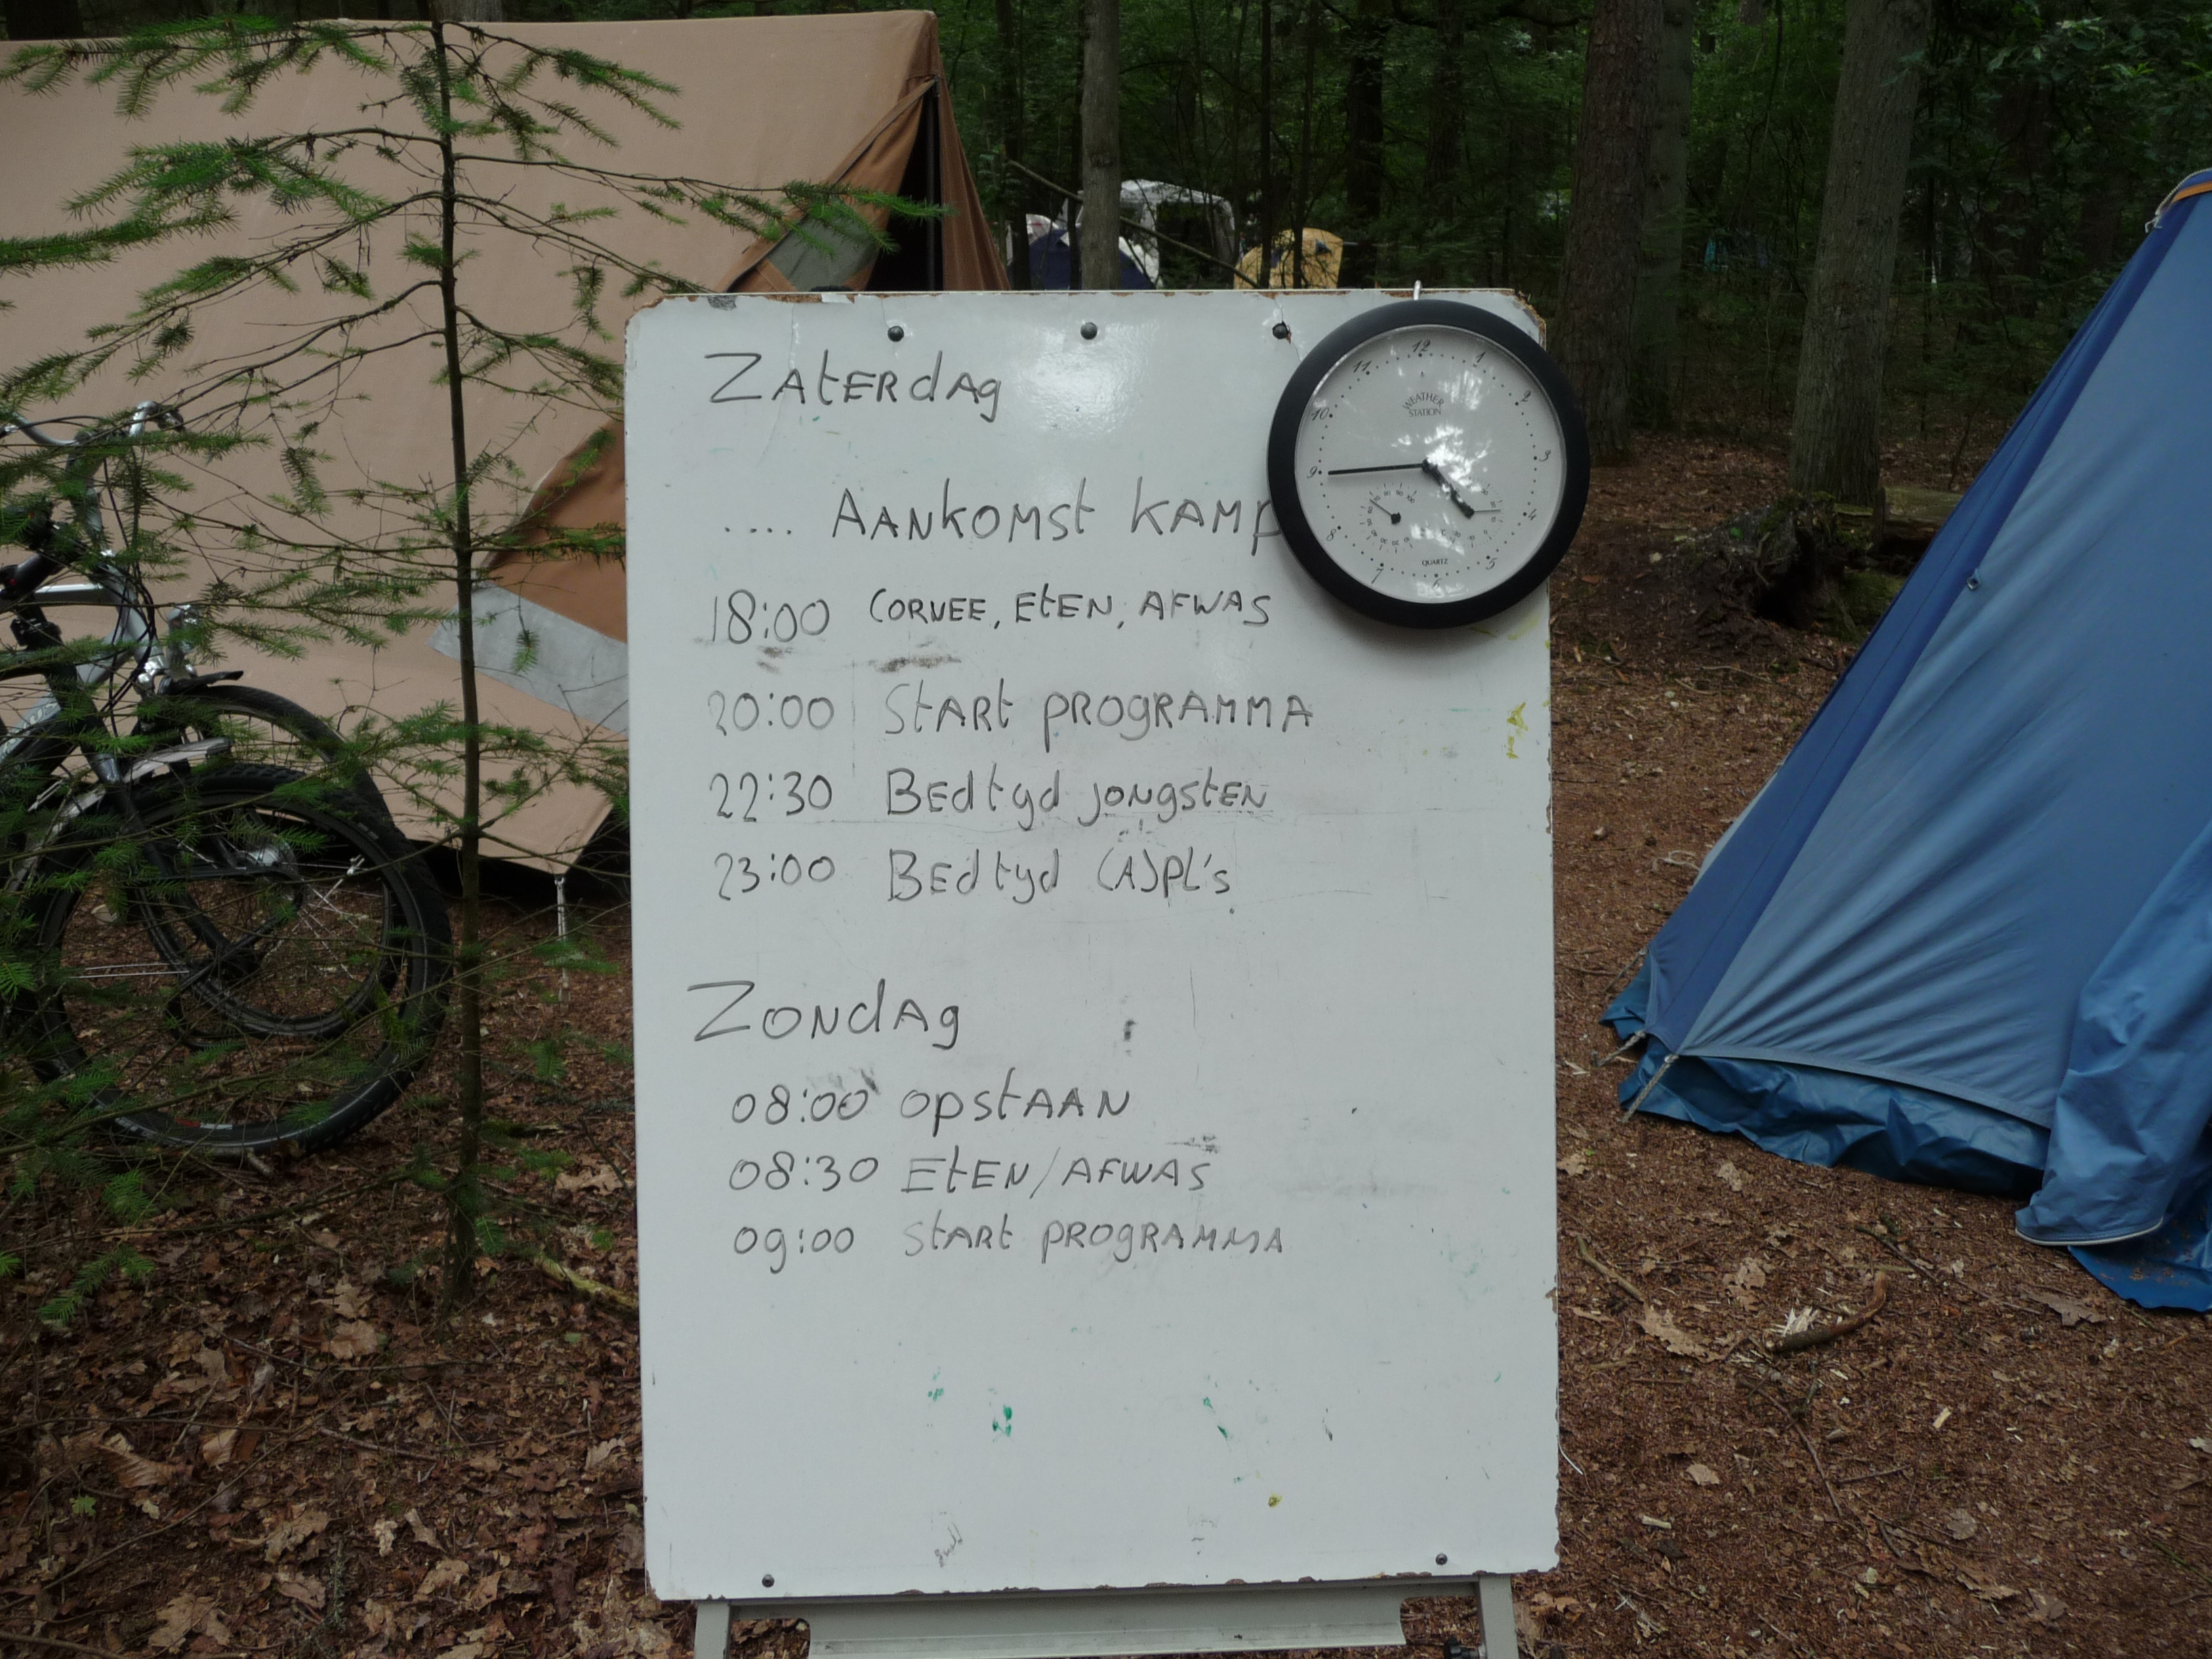 ZAtERdAg
.... AANKOMSt KAMP
18:00 CORVEE, EtEN, AFWAS
20:00 StARt PROGRAMMA
22:30 BEdtyd jONgstEN
23:00 BEdtyd (A)PL's
ZONdAg
08:00 OpstAAN
08:30 EtEN/AFWAS
09:00 StARt PROGRAMMA
12
11 1
10 2
WEATHER
STATION
9 3
8 4
7 5
6
QUARTZ